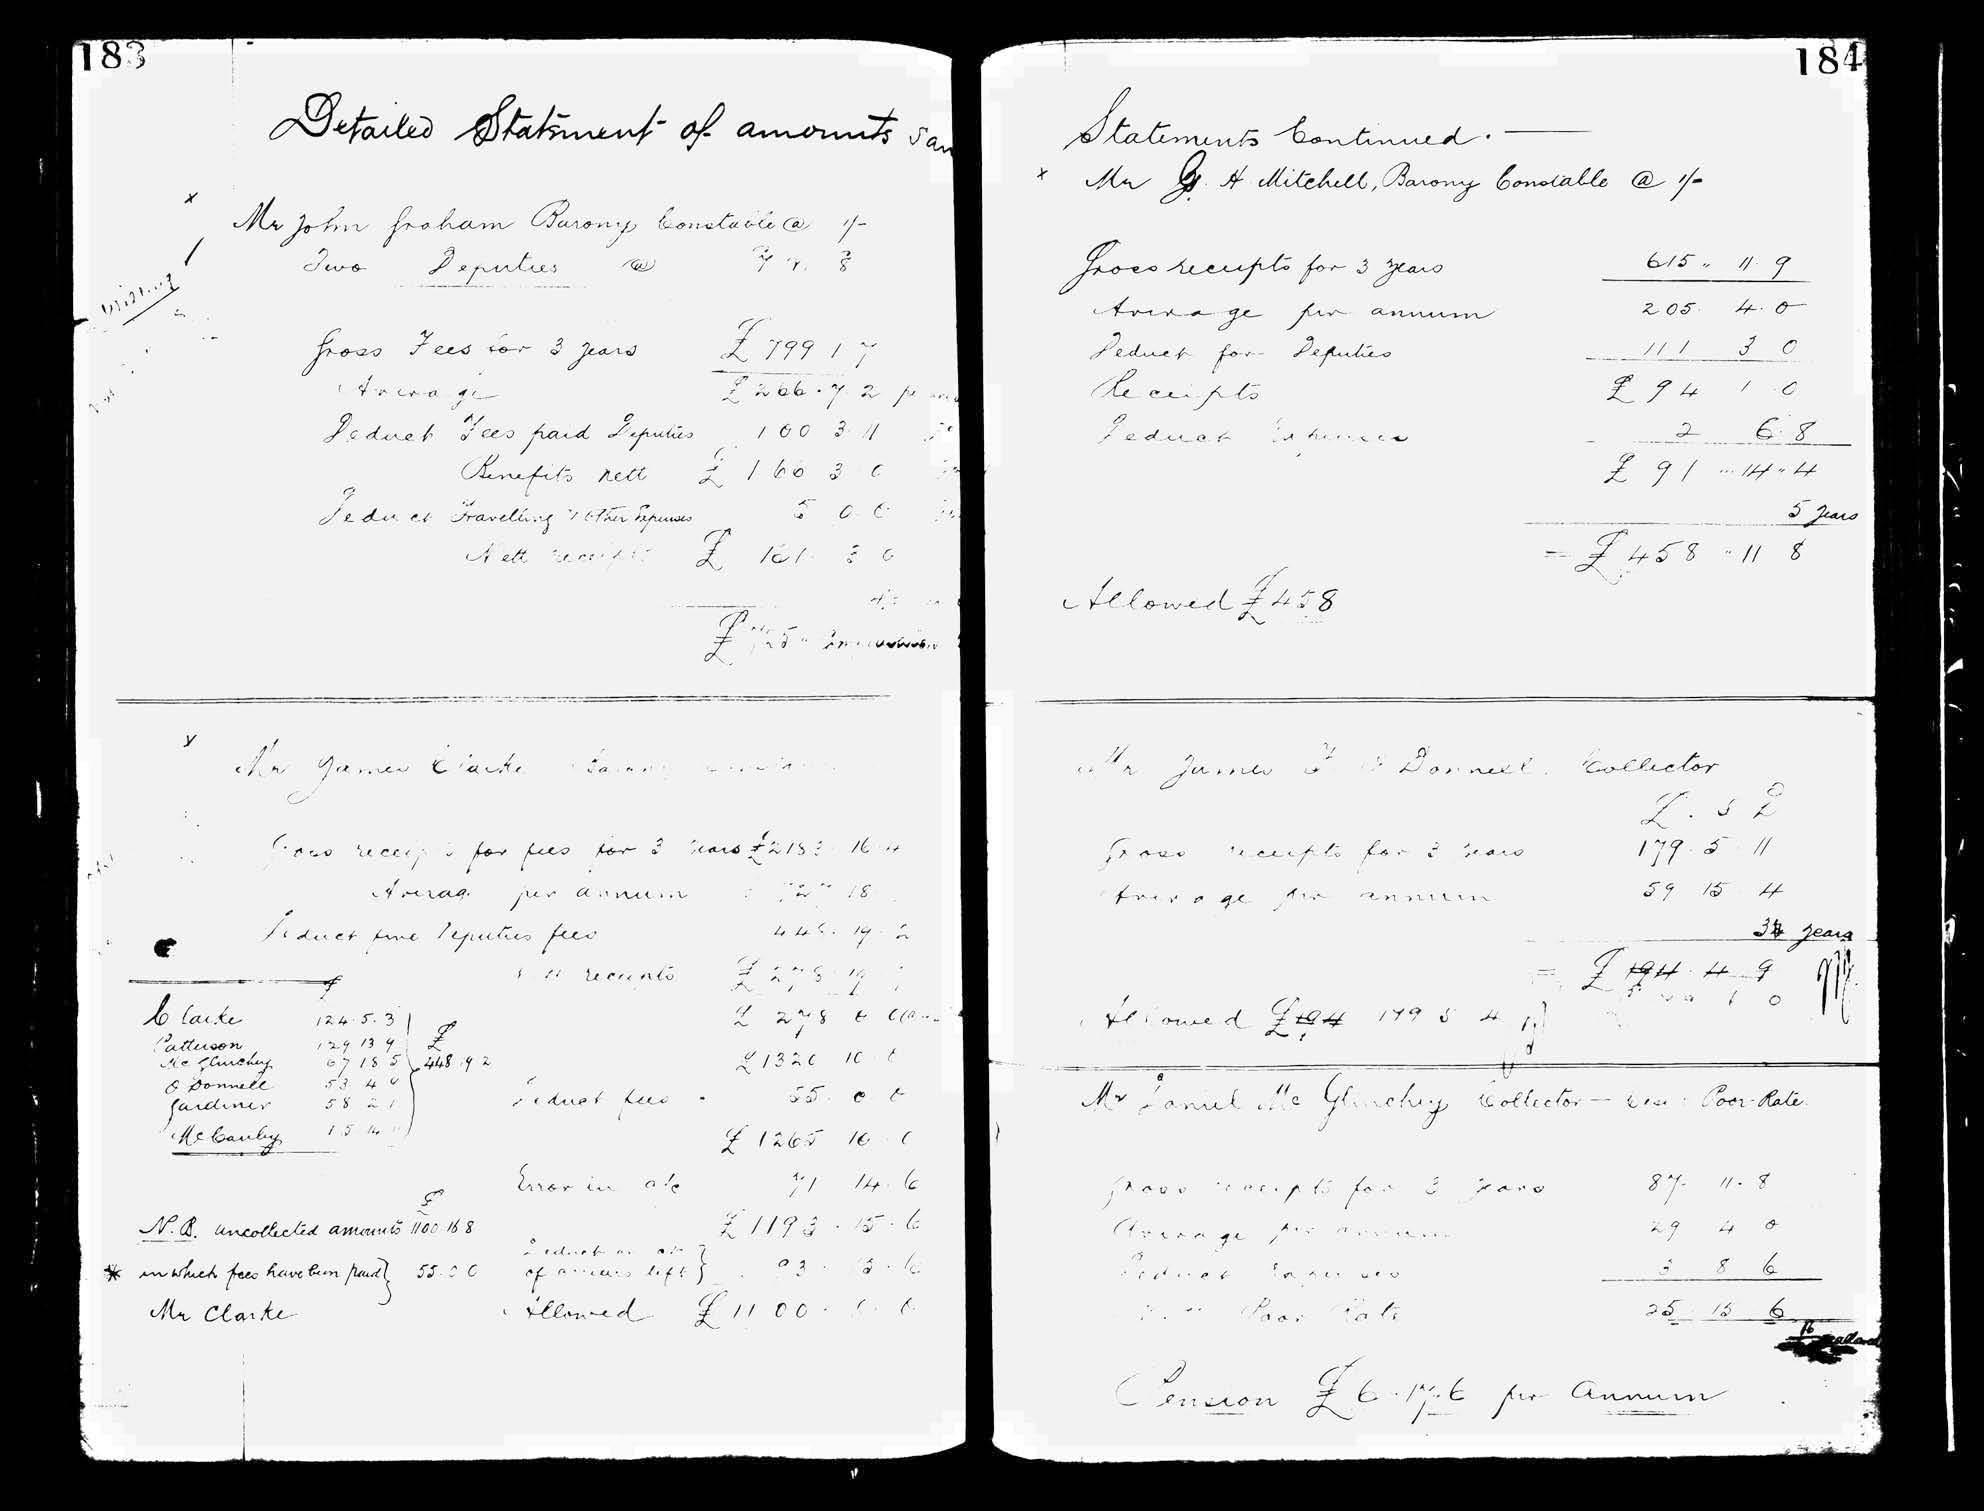 183
Detailed Statement of amounts
x
Mr John Graham Barony Constable @ 1/-
Two Deputies @
Gross Fees for 3 years £ 799 1 7
Average £ 266. 7. 2
Deduct Fees paid Deputies 100 3 11
Benefits nett £ 166 3 0
Deduct Travelling & other Expenses 5 0. 0
Nett receipts £ 161. 3 0
£ 725
Mr James Clarke Barony
Gross receipts for fees for 3 years £2183. 16. 4
Average per annum 18
Deduct five Deputies fees 19. 2
receipts £ 278 19
£ 278 0 0
£1320 10. 0
Deduct fees 55. 0 0
£ 1265 10. 0
Error in a/c 71 14. 6
£ 1193. 15. 6
Deduct on a/c of arrears left 93 15. 6
Allowed £ 1100. 0. 0
Clarke 124. 5. 3
Patterson 129 13 9
McGlinchey 67 18 5
£ 448. 9 2
O'Donnell 53. 4
Gardiner 58 2 1
McCauley 15 14
N.B. uncollected amounts £ 1100. 16 8
* on which fees have been paid 55. 0 0
Mr Clarke
184
Statements Continued. —
x Mr G. H Mitchell, Barony Constable @ 1/-
Gross receipts for 3 years 615 " 11. 9
Average per annum 205. 4. 0
Deduct for Deputies 111 3 0
Receipts £ 94 1. 0
Deduct Expenses 2 6. 8
£ 91 " 14 " 4
5 years
= £ 458 " 11 8
Allowed £ 458
Mr James F O'Donnell. Collector
£. S D
Gross receipts for 3 years 179. 5. 11
Average per annum 59 15. 4
3 years
= £ 194. 4 9
Allowed £ 194 179 5 4
Mr Daniel McGlinchey Collector — Poor-Rate.
Gross receipts for 3 years 87. 11. 8
Average per annum 29 4 0
Deduct Expenses 3 8 6
Poor Rate 25. 15 6
Pension £ 6. 17. 6 per Annum